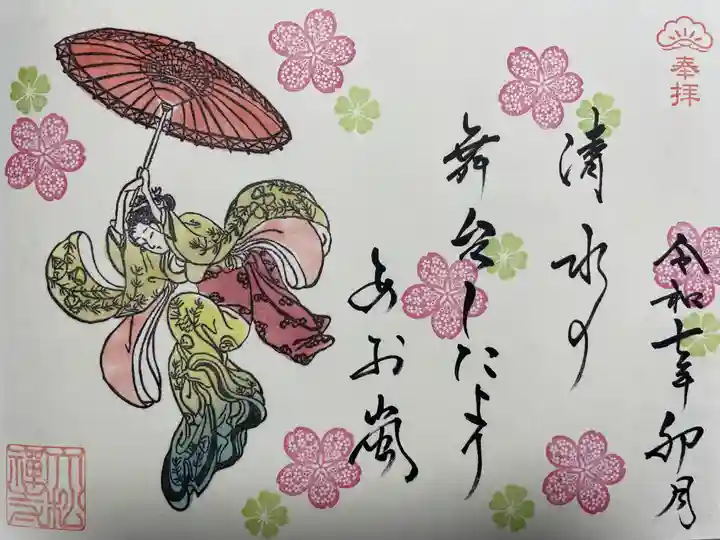 奉拝
令和七年卯月
清水の
舞台したより
あお嵐